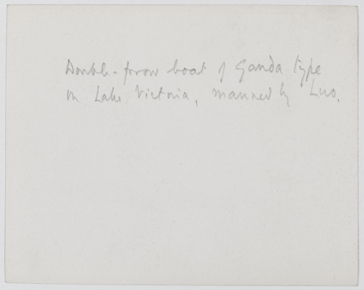 Double-prow boat of Ganda type
on Lake Victoria, manned by Luo.